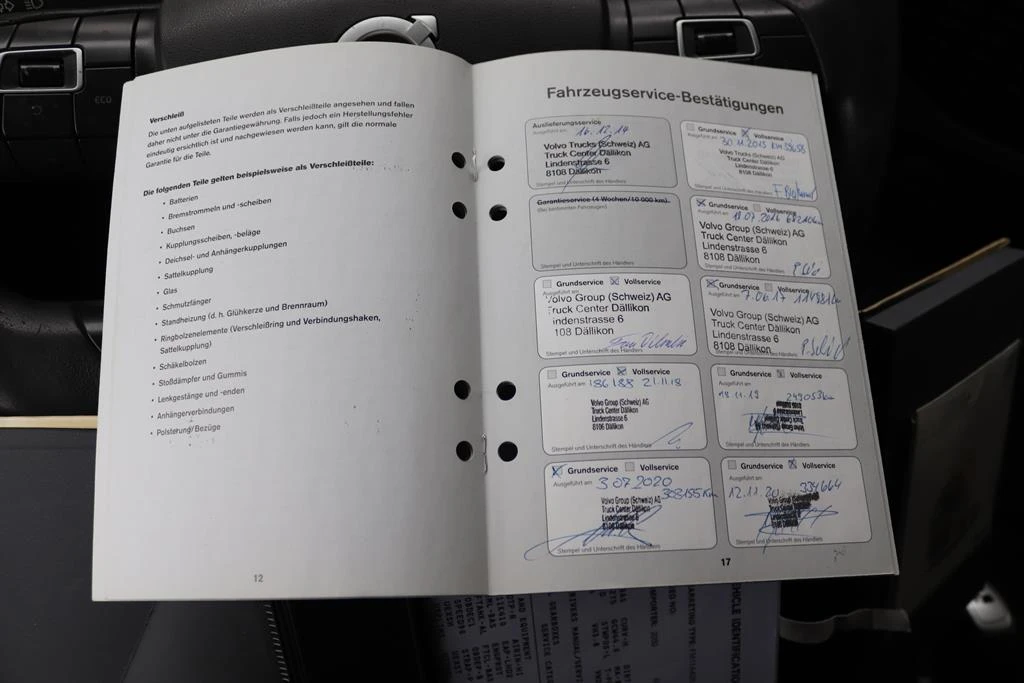 ECO
Verschleiß
Die unten aufgelisteten Teile werden als Verschleißteile angesehen und fallen
daher nicht unter die Garantiegewährung. Falls jedoch ein Herstellungsfehler
eindeutig ersichtlich ist und nachgewiesen werden kann, gilt die normale
Garantie für die Teile.
Die folgenden Teile gelten beispielsweise als Verschleißteile:
• Batterien
• Bremstrommeln und -scheiben
• Buchsen
• Kupplungsscheiben, -beläge
• Deichsel- und Anhängerkupplungen
• Sattelkupplung
• Glas
• Schmutzfänger
• Standheizung (d. h. Glühkerze und Brennraum)
• Ringbolzenelemente (Verschleißring und Verbindungshaken,
Sattelkupplung)
• Schäkelbolzen
• Stoßdämpfer und Gummis
• Lenkgestänge und -enden
• Anhängerverbindungen
• Polsterung/Bezüge
12
Fahrzeugservice-Bestätigungen
Auslieferungsservice
Ausgeführt am 16.12.14
Volvo Trucks (Schweiz) AG
Truck Center Dällikon
Lindenstrasse 6
8108 Dällikon
Stempel und Unterschrift des Händlers
Grundservice Vollservice
Ausgeführt am 30.11.2015
Volvo Trucks (Schweiz) AG
Truck Center Dällikon
Lindenstrasse 6
8108 Dällikon
Stempel und Unterschrift des Händlers
Garantieservice (4 Wochen/10 000 km).
(Bei bestimmten Fahrzeugen)
Stempel und Unterschrift des Händlers
Grundservice Vollservice
Ausgeführt am
Volvo Group (Schweiz) AG
Truck Center Dällikon
Lindenstrasse 6
8108 Dällikon
Grundservice Vollservice
Ausgeführt am
Volvo Group (Schweiz) AG
Truck Center Dällikon
indenstrasse 6
108 Dällikon
Stempel und Unterschrift des Händlers
Grundservice Vollservice
Ausgeführt am 7.06.17
Volvo Group (Schweiz) AG
Truck Center Dällikon
Lindenstrasse 6
8108 Dällikon
Stempel und Unterschrift des Händlers
Grundservice Vollservice
Ausgeführt am 186188 21.11.18
Volvo Group (Schweiz) AG
Truck Center Dällikon
Lindenstrasse 6
8106 Dällikon
Stempel und Unterschrift des Händlers
Grundservice Vollservice
Ausgeführt am
18.11.19 249053km
Stempel und Unterschrift des Händlers
Grundservice Vollservice
Ausgeführt am 3.07.2020
308155km
Volvo Group (Schweiz) AG
Truck Center Dällikon
Lindenstrasse 6
8108 Dällikon
Stempel und Unterschrift des Händlers
Grundservice Vollservice
Ausgeführt am
12.11.20 334664
Stempel und Unterschrift des Händlers
17
VEHICLE IDENTIFICATION